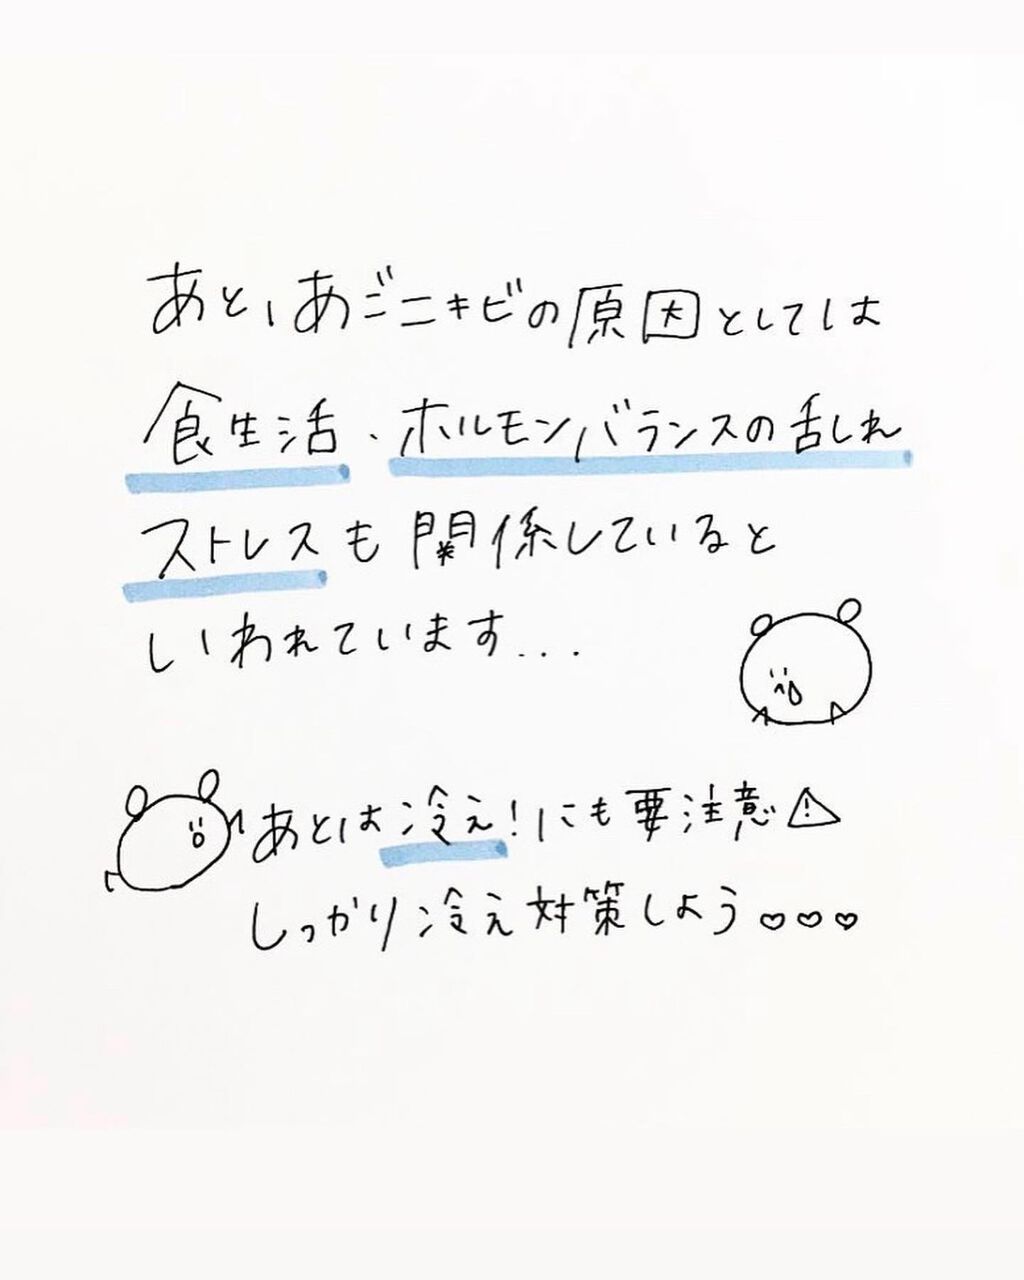 あと、あごニキビの原因としては
食生活、ホルモンバランスの乱れ
ストレスも関係していると
いわれています...
あとは冷え!にも要注意⚠
しっかり冷え対策しよう♡♡♡